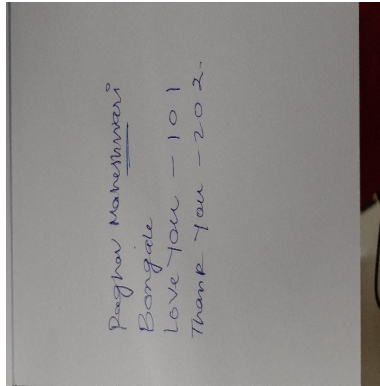 Raghav Maheshwari
Bongale
Love You - 101
Thank You - 202.